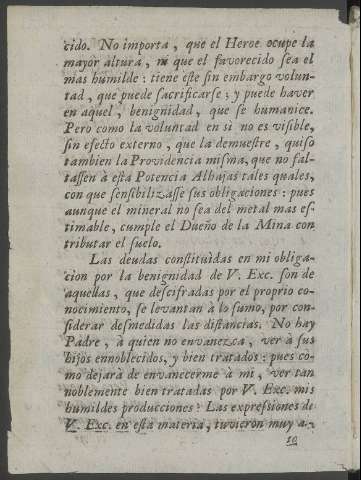 cido. No importa, que el Heroe ocupe la
mayor altura, ni que el favorecido sea el
mas humilde: tiene este sin embargo volun-
tad, que puede sacrificarse; y puede haver
en aquel, benignidad, que se humanice.
Pero como la voluntad en si no es visible,
sin efecto externo, que la demuestre, quiso
tambien la Providencia misma, que no fal-
tassen à esta Potencia Alhajas tales quales,
con que sensibilizasse sus obligaciones: pues
aunque el mineral no sea del metal mas es-
timable, cumple el Dueño de la Mina con
tributar el suelo.
Las deudas constituidas en mi obliga-
cion por la benignidad de V. Exc. son de
aquellas, que descifradas por el proprio co-
nocimiento, se levantan à lo sumo, por con-
siderar desmedidas las distancias. No hay
Padre, à quien no envanezca, ver à sus
hijos ennoblecidos, y bien tratados: pues co-
mo dejarà de envanecerme à mi, ver tan
noblemente bien tratadas por V. Exc. mis
humildes producciones? Las expressiones de
V. Exc. en esta materia, tuvieron muy a-
10